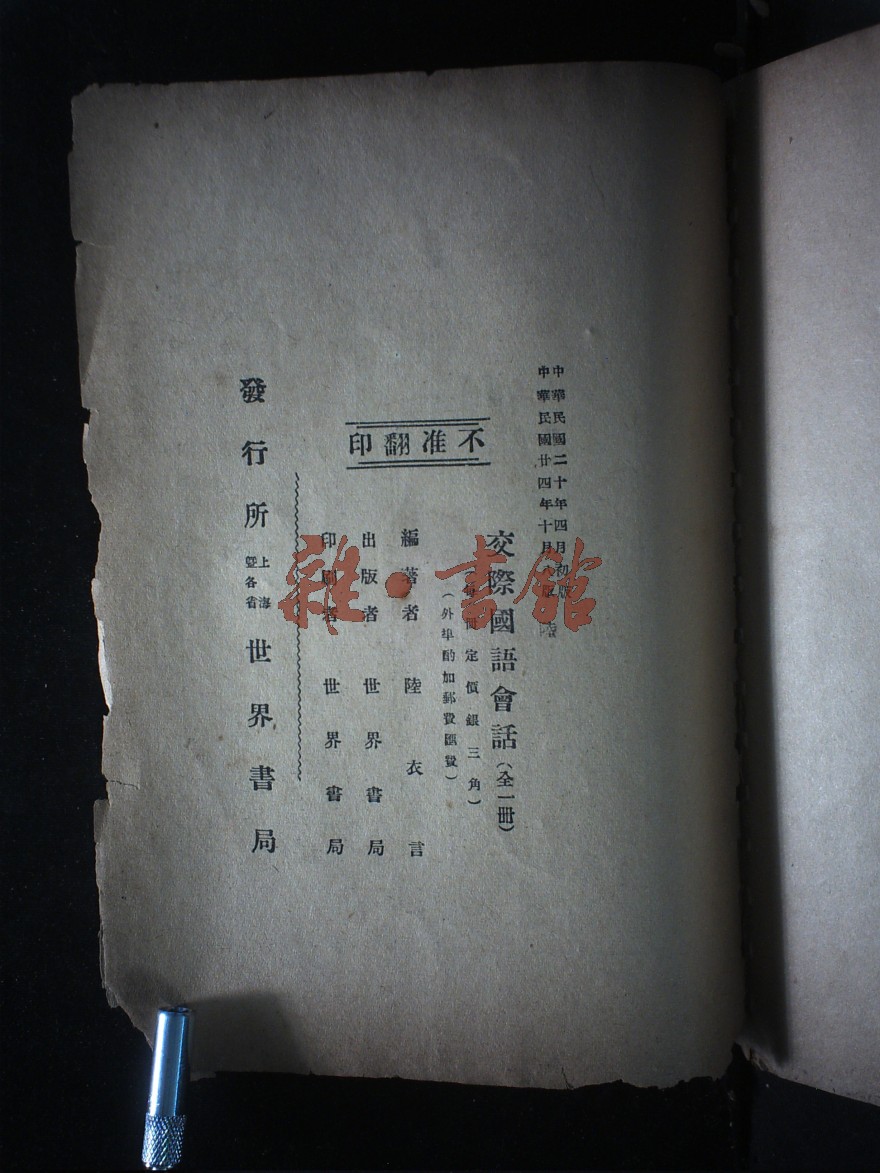 中華民國二十年四月初版
中華民國廿四年十月 版 陸
不准翻印
交際國語會話(全一冊)
(每冊定價銀三角)
(外埠酌加郵費匯費)
編著者 陸衣言
出版者 世界書局
印刷者 世界書局
發行所 上海暨各省 世界書局
雜·書館